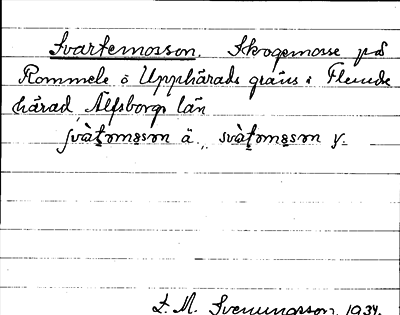 Svartemosson. Skogsmosse på
Rommele o Upphärads gräns i Flundre
härad Älfsborgs län
ʃvàt̠əmo̠sən ä., svàt̠əmo̠sən y.
L. M. Svenungsson. 1934.